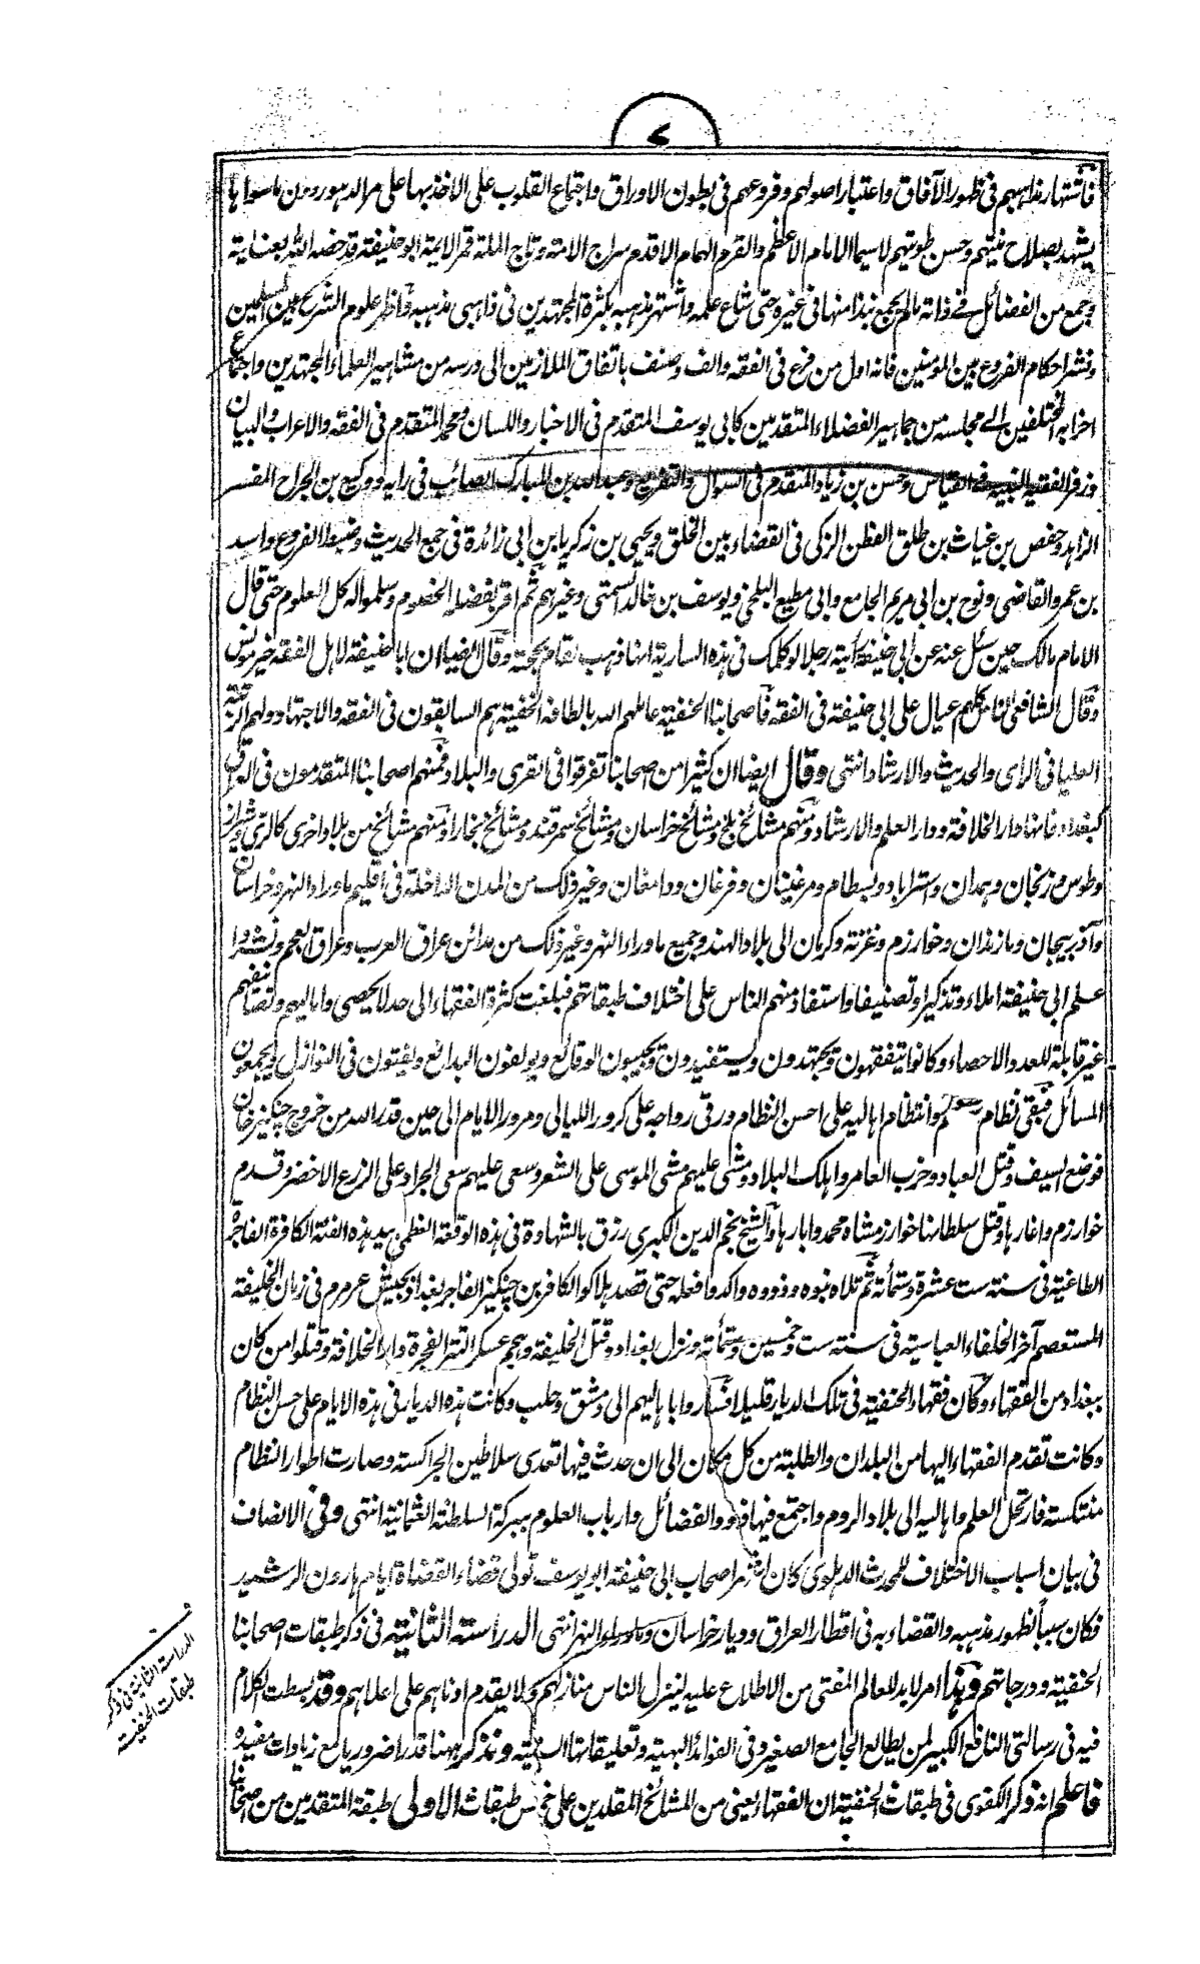 ٧
فاشتهار مذاهبهم فى ظهور الآفاق واعتبار اصولهم وفروعهم فى بطون الاوراق واجتماع القلوب على الاخذ بها على مر الدهور دون ما سواها
يشهد بصلاح نيتهم وحسن طويتهم لا سيما الامام الاعظم والقرم الهمام الاقدم سراج الامة وتاج الملة قمر الايمة ابو حنيفة قد خصه الله بعناية
وجمع من الفضائل فى ذاته ما لم يجمع نبذا منها فى غيره حتى شاع علمه واشتهر مذهبه بكثرة المجتهدين فى ذاهبى مذهبه واظهر علوم الشرع بين المسلمين
ونشر احكام الفروع بين المؤمنين فانه اول من فرع فى الفقه والف وصنف باتفاق الملازمين الى درسه من مشاهير العلماء المجتهدين واجتماع
احزابه المختلفين الى مجلسه من جماهير الفضلاء المتقدمين كابى يوسف المتقدم فى الاخبار واللسان ومحمد المتقدم فى الفقه والاعراب والبيان
وزفر الفقيه النبيه فى القياس وحسن بن زياد المتقدم فى السوال والتفريع وعبد الله بن المبارك الصائب فى رايه ووكيع بن الجراح المفسر
الزاهد وحفص بن غياث بن طلق الفطن الزكى فى القضاء بين الخلق ويحيى بن زكريا بن ابى زائدة فى جمع الحديث وضبط الفروع واسد
بن عمرو القاضى ونوح بن ابى مريم الجامع وابى مطيع البلخى ويوسف بن خالد السمتى وغيرهم ثم اقر بفضله الخصوم وسلموا له كل العلوم حتى قال
الامام مالك حين سئل عنه عن ابى حنيفة رأيته رجلا لو كلمك فى هذه السارية انها ذهب لقام بحجته وقال ايضا ان ابا حنيفة لاهل الفقه خير مونس
وقال الشافعى الناس كلهم عيال على ابى حنيفة فى الفقه فاصحابنا الحنفية عاملهم الله بالطافه الخفية هم السابقون فى الفقه والاجتهاد ولهم الرتبة
العليا فى الراى والحديث والارشاد انتهى وقال ايضا ان كثيرا من اصحابنا تفرقوا فى القرى والبلاد فمنهم اصحابنا المتقدمون فى العراق
كبغداد فانها دار الخلافة ودار العلم والارشاد ومنهم مشائخ بلخ ومشائخ خراسان ومشائخ سمرقند ومشائخ بخارا ومنهم مشائخ من بلاد اخرى كالرى وشيراز
وطوس وزنجان وهمدان واستراباد وبسطام ومرغينان وفرغان ودامغان وغير ذلك من المدن الداخلة فى اقليم ماوراء النهر وخراسان
وآذربيجان ومازندان وخوارزم وغزنة وكرمان الى بلاد الهند وجميع ماوراء النهر وغير ذلك من مدائن عراق العرب وعراق العجم ونشروا
علم ابى حنيفة املاء وتذكيرا وتصنيفا واستفاد منهم الناس على اختلاف طبقاتهم فبلغت كثرة الفقهاء الى حد لا يحصى واماليهم وتصانيفهم
غير قابلة للعد والاحصاء وكانوا يتفقهون ويجتهدون ويستفيدون ويجيبون الوقائع ويولفون البدائع ويفتون فى النوازل ويجمعون
المسائل فبقى نظام وانتظام اهاليه على احسن النظام ورقى رواجه على كرور الليالى ومرور الايام الى حين قدر الله من خروج چنگيز خان
فوضع السيف وقتل العباد وخرب العامر واهلك البلاد ومشى عليهم مشى الموسى على الشعر وسعى عليهم سعى الجراد على الزرع الاخضر وقدم
خوارزم واغار بها وقتل سلطانها خوارزمشاه محمد وابارها والشيخ نجم الدين الكبرى رزق بالشهادة فى هذه الوقعة العظمى بيد هذه الفئة الكافرة الفاجرة
الطاغية فى سنة ست عشرة وستمأته ثم تلاه بنوه وذووه واكدوا فعله حتى قصد هلاكو الكافر بن چنگيز الفاجر بغداد بجيش عرمرم فى زمان الخليفة
المستعصم آخر الخلفاء العباسية فى سنة ست وخمسين وستمأته ونزل بغداد وقتل الخليفة وهجم عسكر التتر الفجرة دار الخلافة وقتلوا من كان
ببغداد من الفقهاء وكان فقهاء الحنفية فى تلك الديار قليلا فساروا باهاليهم الى دمشق وحلب وكانت هذه الديار فى هذه الايام على حسن النظام
وكانت تقدم الفقهاء اليها من البلدان والطلبة من كل مكان الى ان حدث فيها تعدى سلاطين الجراكسة وصارت اطوار النظام
منتكسة فارتحل العلم واهاليه الى بلاد الروم واجتمع فيها ذوو الفضائل وارباب العلوم ببركة السلطنة العثمانية انتهى وفى الانصاف
فى بيان اسباب الاختلاف للمحدث الدهلوى كان اشهر اصحاب ابى حنيفة ابو يوسف تولى قضاء القضاة ايام هارون الرشيد
فكان سبباً لظهور مذهبه والقضاء به فى اقطار العراق وديار خراسان وماوراء النهر انتهى الدراسة الثانية فى ذكر طبقات اصحابنا
الحنفية ودرجاتهم وهذا امر لابد للعالم المفتى من الاطلاع عليه لينزل الناس منازلهم ولا يقدم ادناهم على اعلاهم وقد بسطت الكلام
فيه فى رسالتى النافع الكبير لمن يطالع الجامع الصغير وفى الفوائد البهية وتعليقاتها السنية ونذكر ههنا قدرا ضروريا مع زيادات مفيدة
فاعلم انه ذكر الكفوى فى طبقات الحنفية ان الفقهاء يعنى من المشائخ المقلدين على خمس طبقات الاولى طبقة المتقدمين من اصحابنا
الدراسة الثانية فى ذكر
طبقات الحنفية